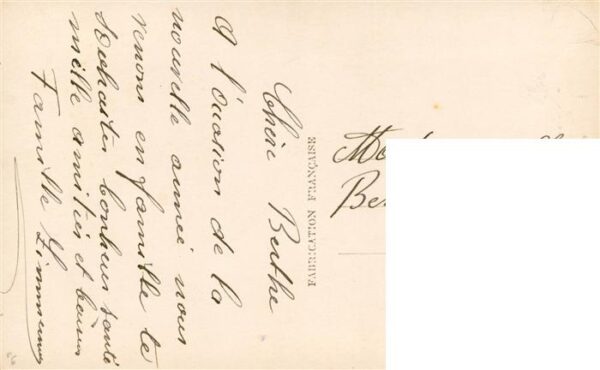 Chère Berthe
A l'occasion de la
nouvelle année nous
venons en famille te
souhaiter bonheur santé
mille amitiés et baisers
Famille Zimmermann
FABRICATION FRANÇAISE